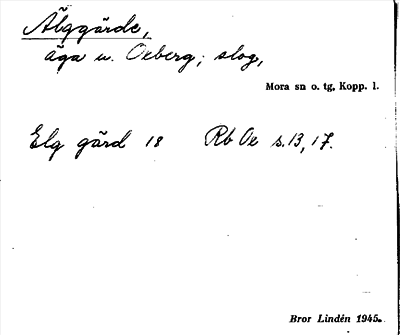 Älggärde,
äga u. Oxberg; slog,
Mora sn o. tg, Kopp. l.
Elg gärd 18 Rb Oe s. 13, 17.
Bror Lindén 1945.